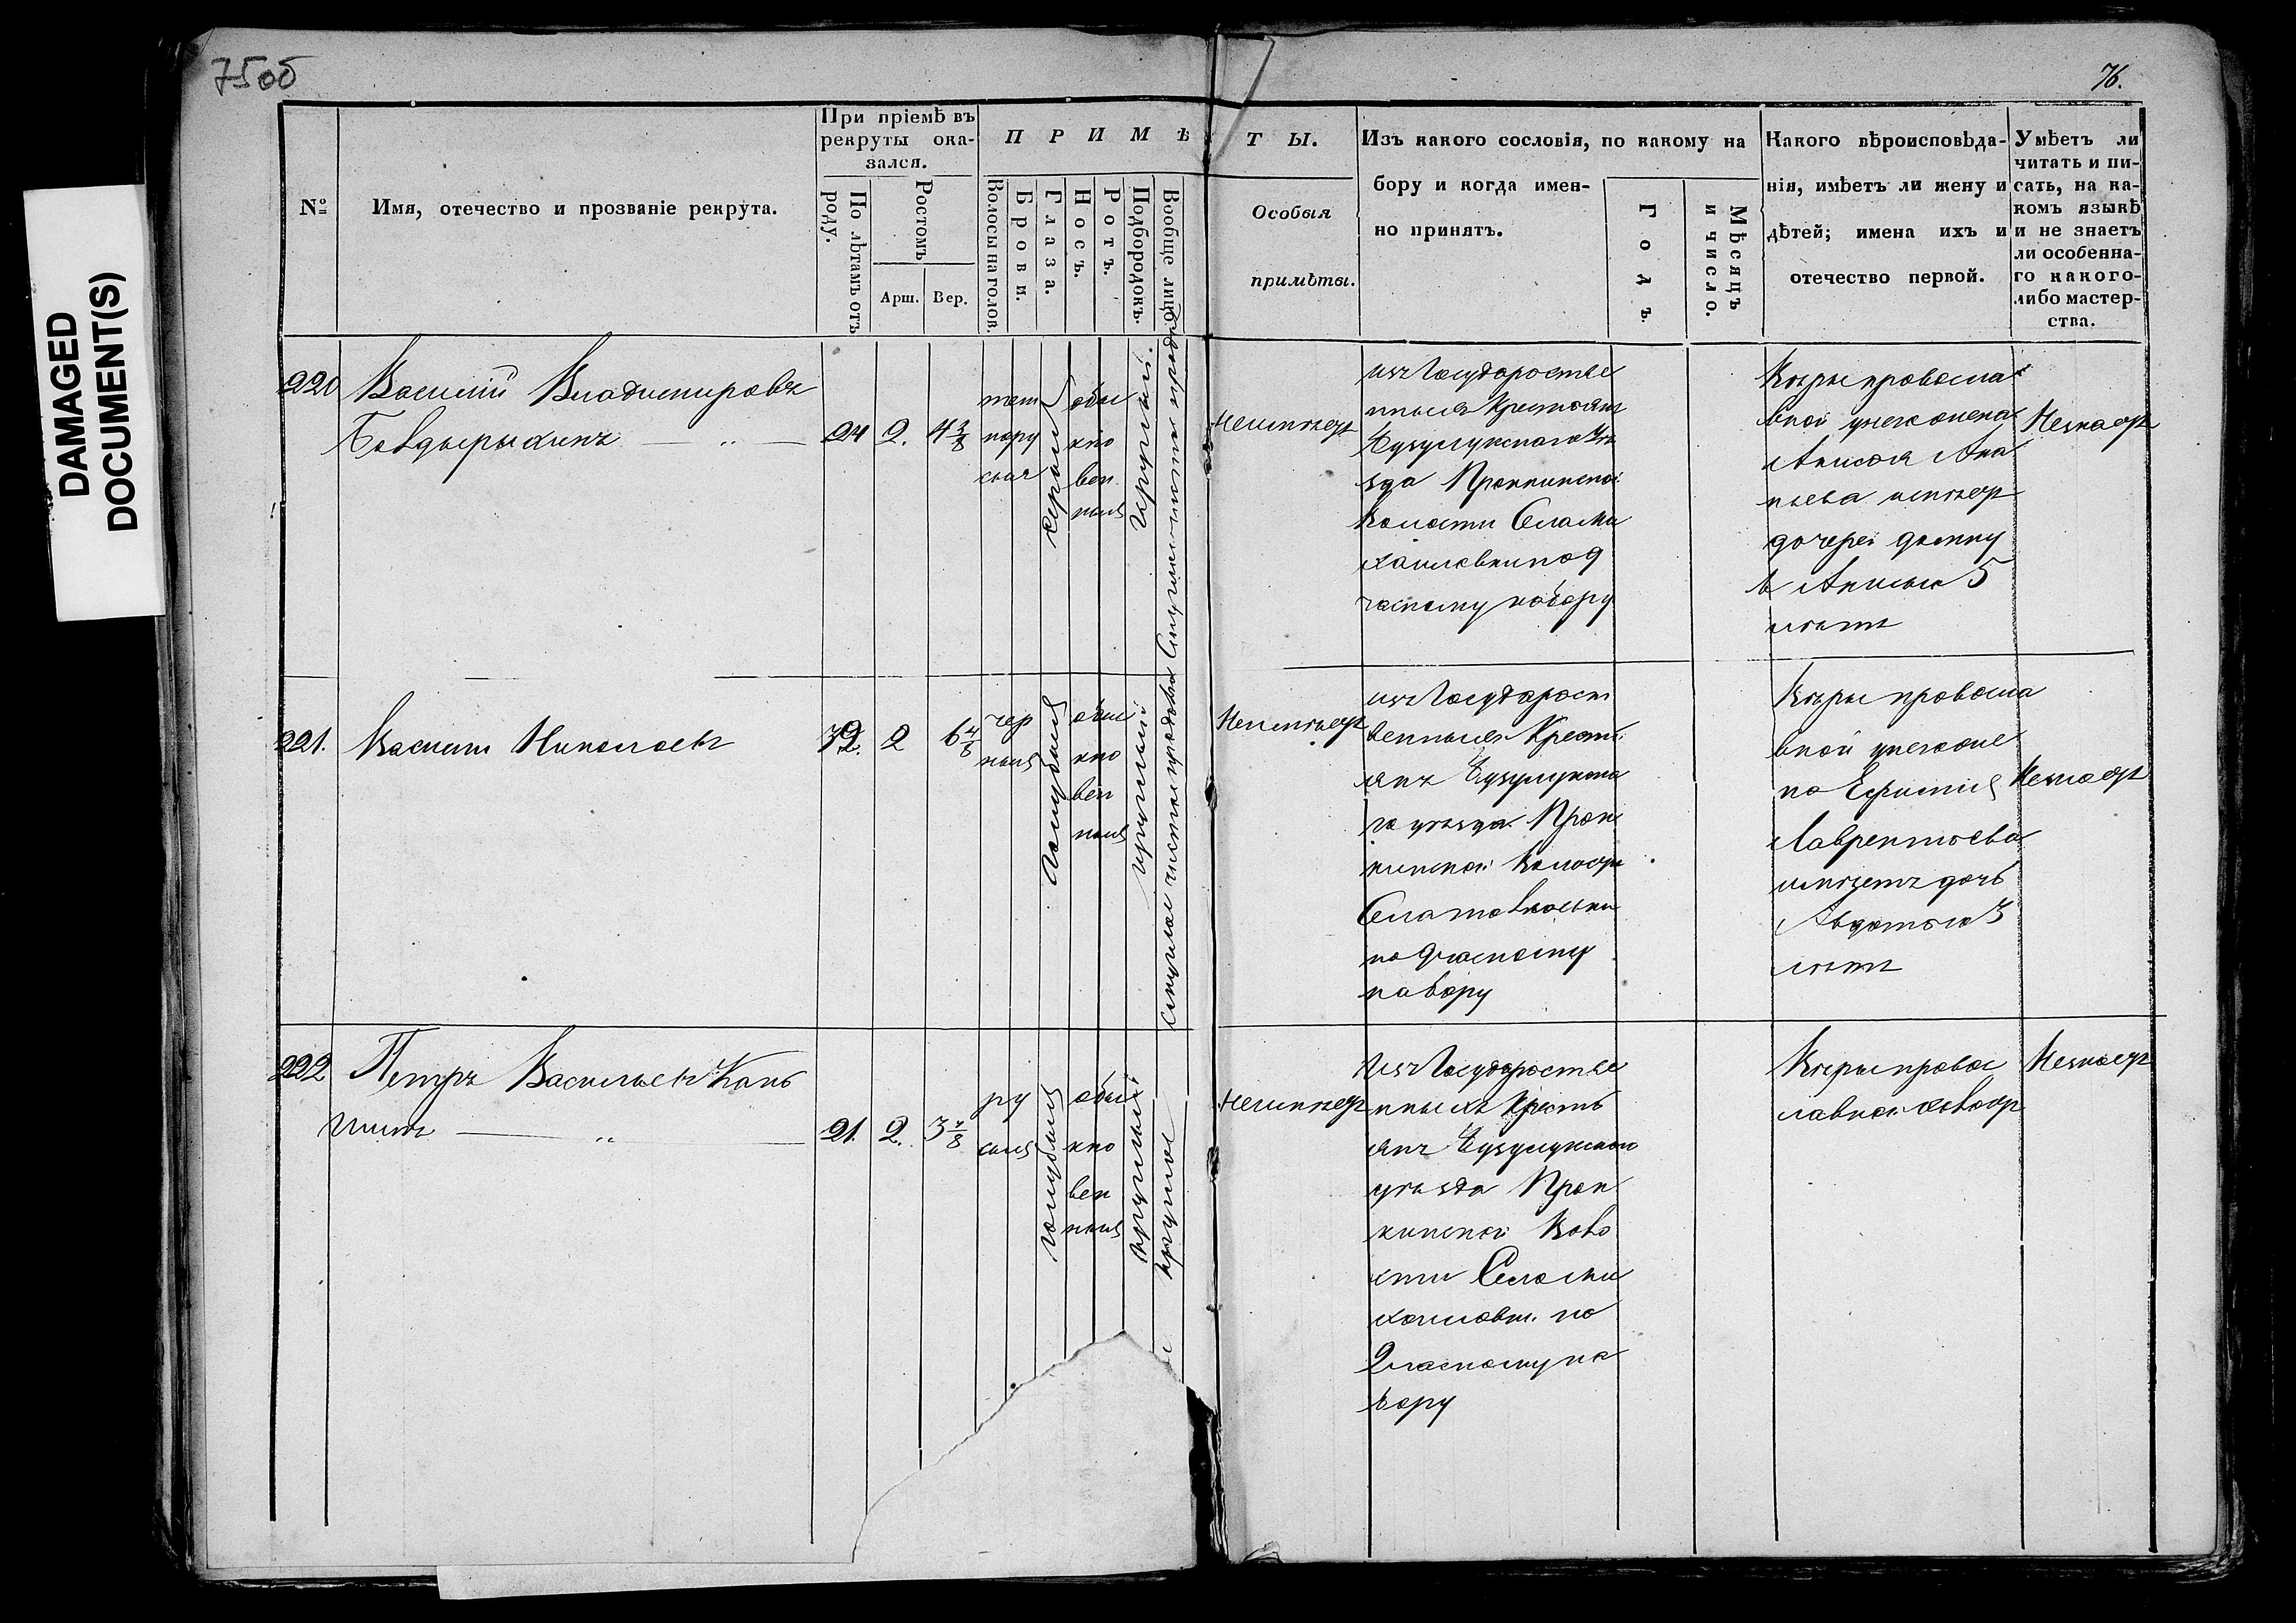 75об
76.
DAMAGED
DOCUMENT(S)
№
Имя, отечество и прозваніе рекрута.
При пріемѣ въ
рекруты ока-
зался.
По лѣтамъ отъ
роду.
Ростомъ
Арш.
Вер.
ПРИМѢ
ТЫ.
Волосы на голов.
Брови.
Глаза.
Носъ.
Ротъ.
Подбородокъ.
Вообще лицо
Особыя
примѣты.
Изъ какого сословія, по какому на
бору и когда имен-
но принятъ.
Годъ.
Мѣсяцъ
и число.
Какого вѣроисповѣда-
нія, имѣетъ ли жену и
дѣтей; имена ихъ и
отечество первой.
Умѣетъ ли
читать и пи-
сать, на ка-
комъ языкѣ
и не знаетъ
ли особенна-
го какого-
либо мастер-
ства.
220
Василій Владимировъ
24
2.
4 3/8
темн
нору
сыя
серыя
обы
кно
вен
ныя
круглый.
Неимѣетъ
изъ Государстве
нныхъ Крестьянъ
Бузулукскаго Уѣ
зда
Волости Села Ми
хайловки по 9
частному набору
Вѣры правосла
вной женатъ на
Анисья Ана
ньева имѣетъ
дочерей Домну
Анисью 5
лѣтъ
Незнаетъ
221.
Василій Николаевъ
32.
2
6 4/8
чер
ныя
голубыя
обы
кно
вен
ныя
круглый
Неимѣетъ
изъ Государст
венныхъ Крест
янъ Бузулукска
го уѣзда Прон
кинской Волости
Села
по частному
набору
Вѣры правосла
вной
на Ефимія
Лаврентьева
имѣетъ дочь
Авдотью 3
лѣтъ
Незнаетъ
222
Петръ Васильевъ Кань
шинъ
21.
2.
3 7/8
ру
сыя
голубыя
обы
кно
вен
ныя
круглый
круглое
Неимѣетъ
изъ Государстве
нныхъ Кресть
янъ Бузулукскаго
уѣзда Прон
кинской Воло
сти Села Ми
хайловки по
2 частному на
бору
Вѣры право
славной холостъ
Незнаетъ